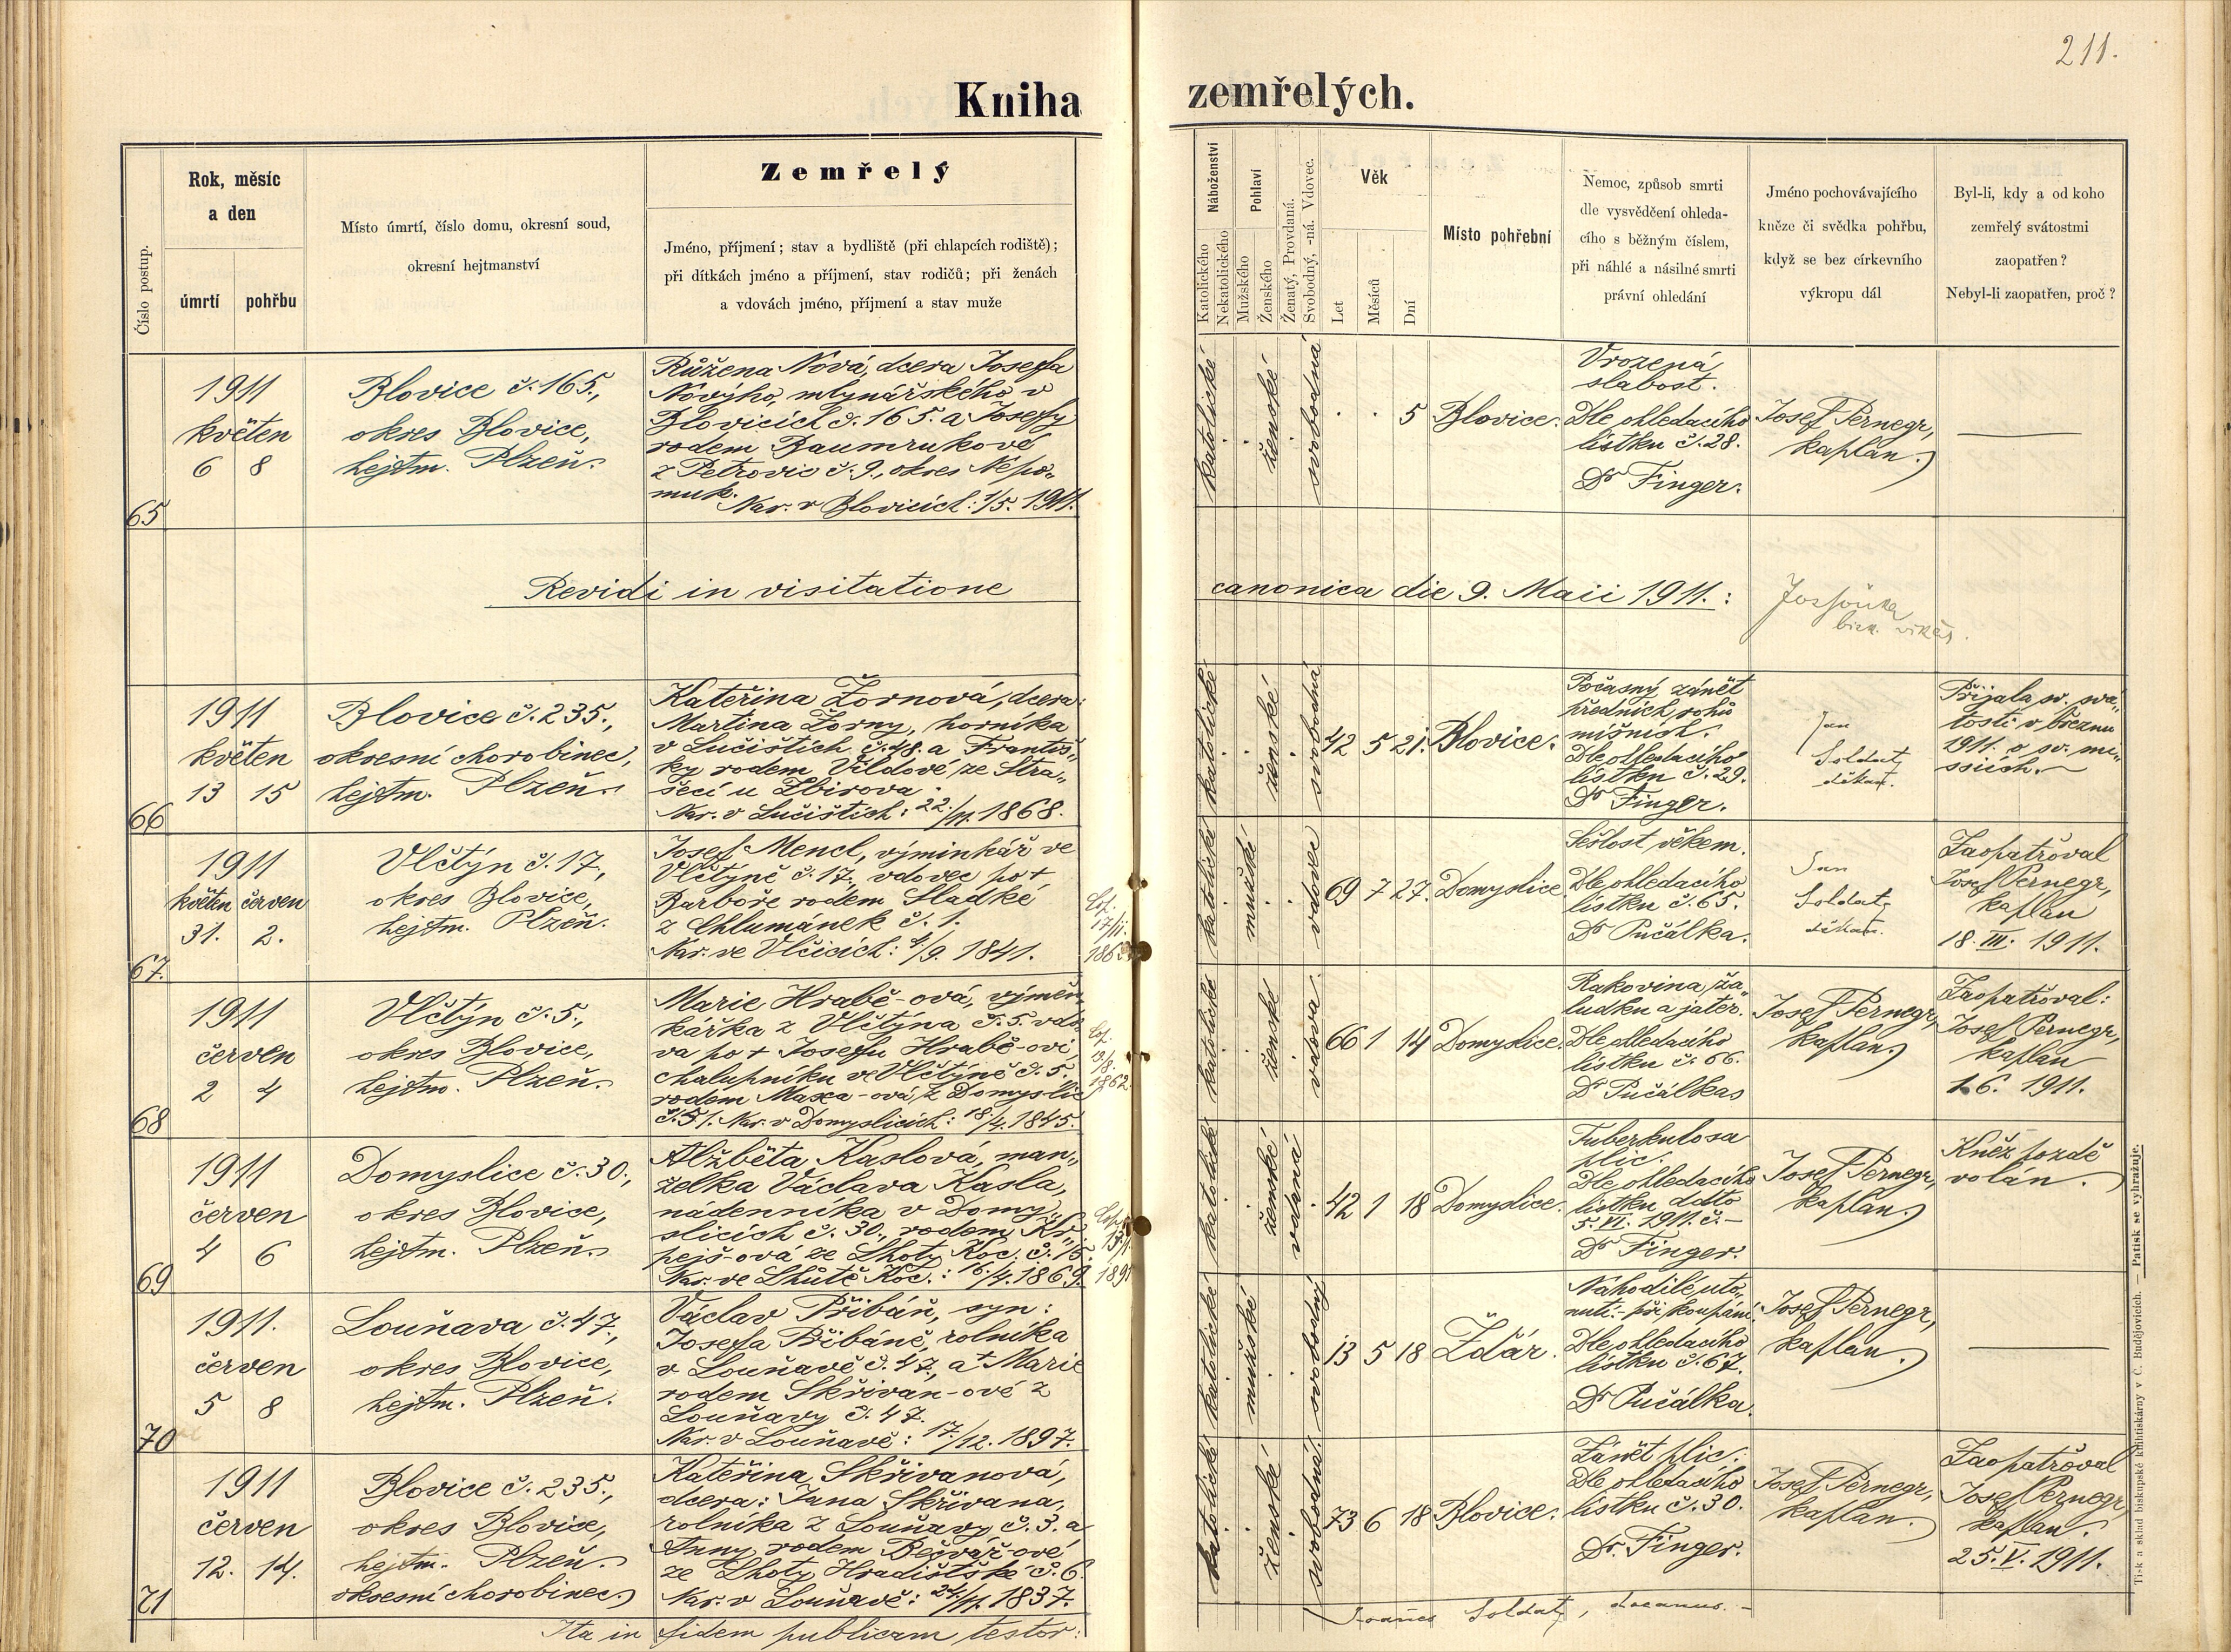 211.
Kniha zemřelých.
Číslo postup.
Rok, měsíc
a den
úmrtí
pohřbu
Místo úmrtí, číslo domu, okresní soud,
okresní hejtmanství
Zemřelý
Jméno, příjmení; stav a bydliště (při chlapcích rodiště);
při dítkách jméno a příjmení, stav rodičů; při ženách
a vdovách jméno, příjmení a stav muže
Náboženství
Katolického
Nekatolického
Pohlaví
Mužského
Ženského
Ženatý, Provdaná.
Svobodný, -ná. Vdovec.
Věk
Let
Měsíců
Dní
Místo pohřební
Nemoc, způsob smrti
dle vysvědčení ohleda-
cího s běžným číslem,
při náhlé a násilné smrti
právní ohledání
Jméno pochovávajícího
kněze či svědka pohřbu,
když se bez církevního
výkropu dál
Byl-li, kdy a od koho
zemřelý svátostmi
zaopatřen?
Nebyl-li zaopatřen, proč?
65
1911
květen
6 8
Blovice č. 165.,
okres Blovice,
hejtm. Plzeň.
Růžena Nová, dcera Josefa
Nového, mlynářského v
Blovicích č. 165. a Josefy
rodem Baumrukové
z Petrovic č. 9., okres Nepo„
muk.
Nar. v Blovicích: 1/5. 1911.
katolické
ženské
svobodná
. . 5
Blovice.
Vrozená
slabost.
Dle ohledacího
lístku č. 28.
Dr Finger.
Josef Pernegr,
kaplan.
Revidi in visitatione canonica die 9. Maii 1911.:
66
1911
květen
13 15
Blovice č. 235.,
okresní chorobinec,
hejtm. Plzeň.
Kateřina Žornová, dcera:
Martina Žorny, horníka
v Lučištích č. 48. a Františ„
ky rodem Vildové ze Stra„
šecí u Zbirova.
Nar. v Lučištích: 22./11. 1868.
katolické
ženské
svobodná
42 5 21.
Blovice.
Počasný zánět
předních rohů
míšních.
Dle ohledacího
lístku č. 29.
Dr Finger.
Jan
Soldat,
děkan.
Přijala sv. svá„
tosti v březnu
1911. o sv. mi„
ssiích.
67.
1911
květen červen
31. 2.
Vlčtýn č. 17.,
okres Blovice,
hejtm. Plzeň.
Josef Mencl, výminkář ve
Vlčtýně č. 17., vdovec po +
Barboře rodem Sladké
z Chlumánek č. 1.
Nar. ve Vlčicích: 4/9. 1841.
17/11.
katolické
mužské
vdovec
69 7 27.
Domyslice
Sešlost věkem.
Dle ohledacího
lístku č. 65.
Dr Pučálka.
Jan
Soldat,
děkan.
Zaopatřoval
Josef Pernegr,
kaplan
18. III. 1911.
68
1911
červen
2 4
Vlčtýn č. 5.,
okres Blovice,
hejtm. Plzeň.
Marie Hrabě-ová, výměn„
kářka z Vlčtýna č. 5. vdo„
va po + Josefu Hrabě-ovi,
chalupníku ve Vlčtýně č. 5.
rodem Maxa-ová z Domyslic
č. 51. Nar. v Domyslicích: 18./4. 1845.
13/8.
1862.
katolické
ženské
vdova.
66 1 14
Domyslice.
Rakovina ža„
ludku a jater.
Dle ohledacího
lístku č. 66.
Dr Pučálka
Josef Pernegr,
kaplan.
Zaopatřoval:
Josef Pernegr,
kaplan
1. 6. 1911.
69
1911
červen
4 6
Domyslice č. 30.,
okres Blovice,
hejtm. Plzeň.
Alžběta Kaslová, man„
želka Václava Kasla,
nádenníka v Domy„
slicích č. 30., rodem Kr„
pejš-ová ze Lhoty Koc. č. 15.
Nar. ve Lhotě Koc.: 16./4. 1869.
katolické
ženské
vdaná
42 1 18
Domyslice.
Tuberkulosa
plic.
Dle ohledacího
lístku ddto
5. VI. 1911. č. –
Dr Finger.
Josef Pernegr,
kaplan.
Kněz pozdě
volán.
70
1911.
červen
5 8
Louňava č. 47.,
okres Blovice,
hejtm. Plzeň.
Václav Přibáň, syn:
Josefa Přibáně, rolníka
v Louňavě č. 47., a + Marie
rodem Skřivan-ové z
Louňavy č. 47.
Nar. v Louňavě: 17./12. 1897.
katolické
mužské
svobodný
13 5 18
Žďár.
Náhodilé uto„
nutí - při koupání.
Dle ohledacího
lístku č. 67.
Dr Pučálka.
Josef Pernegr,
kaplan.
71
1911
červen
12. 14.
Blovice č. 235.,
okres Blovice,
hejtm. Plzeň.
okresní chorobinec.
Kateřina Skřivanová,
dcera: Jana Skřivana,
rolníka z Louňavy č. 3. a
Anny rodem Bečvář-ové
ze Lhoty Hradištské č. 6.
Nar. v Louňavě: 24./11. 1837.
katolické
ženské
svobodná.
73 6 18
Blovice.
Zánět plic.
Dle ohledacího
lístku č. 30.
Dr. Finger.
Josef Pernegr,
kaplan.
Zaopatřoval
Josef Pernegr,
kaplan.
25. V. 1911.
Ita in fidem publicam testor: Joannes Soldat, decanus. –
Tisk a sklad biskupské knihtiskárny v Č. Budějovicích. — Patisk se vyhražuje.